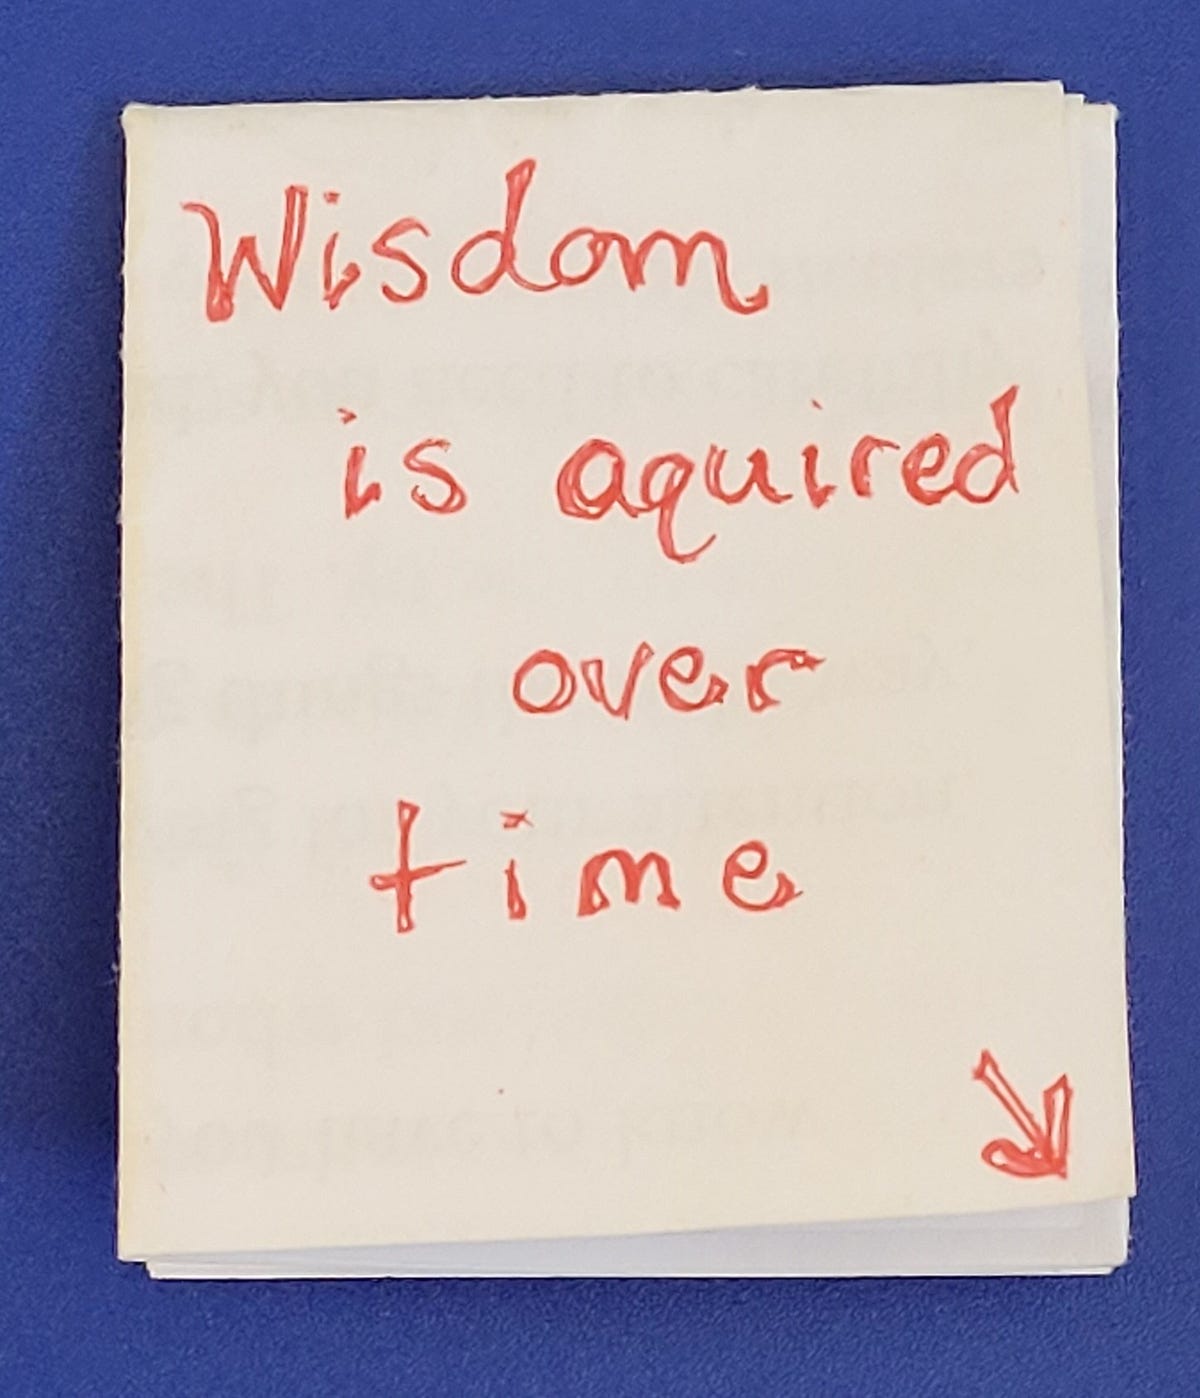 Wisdom
is aquired
over
time